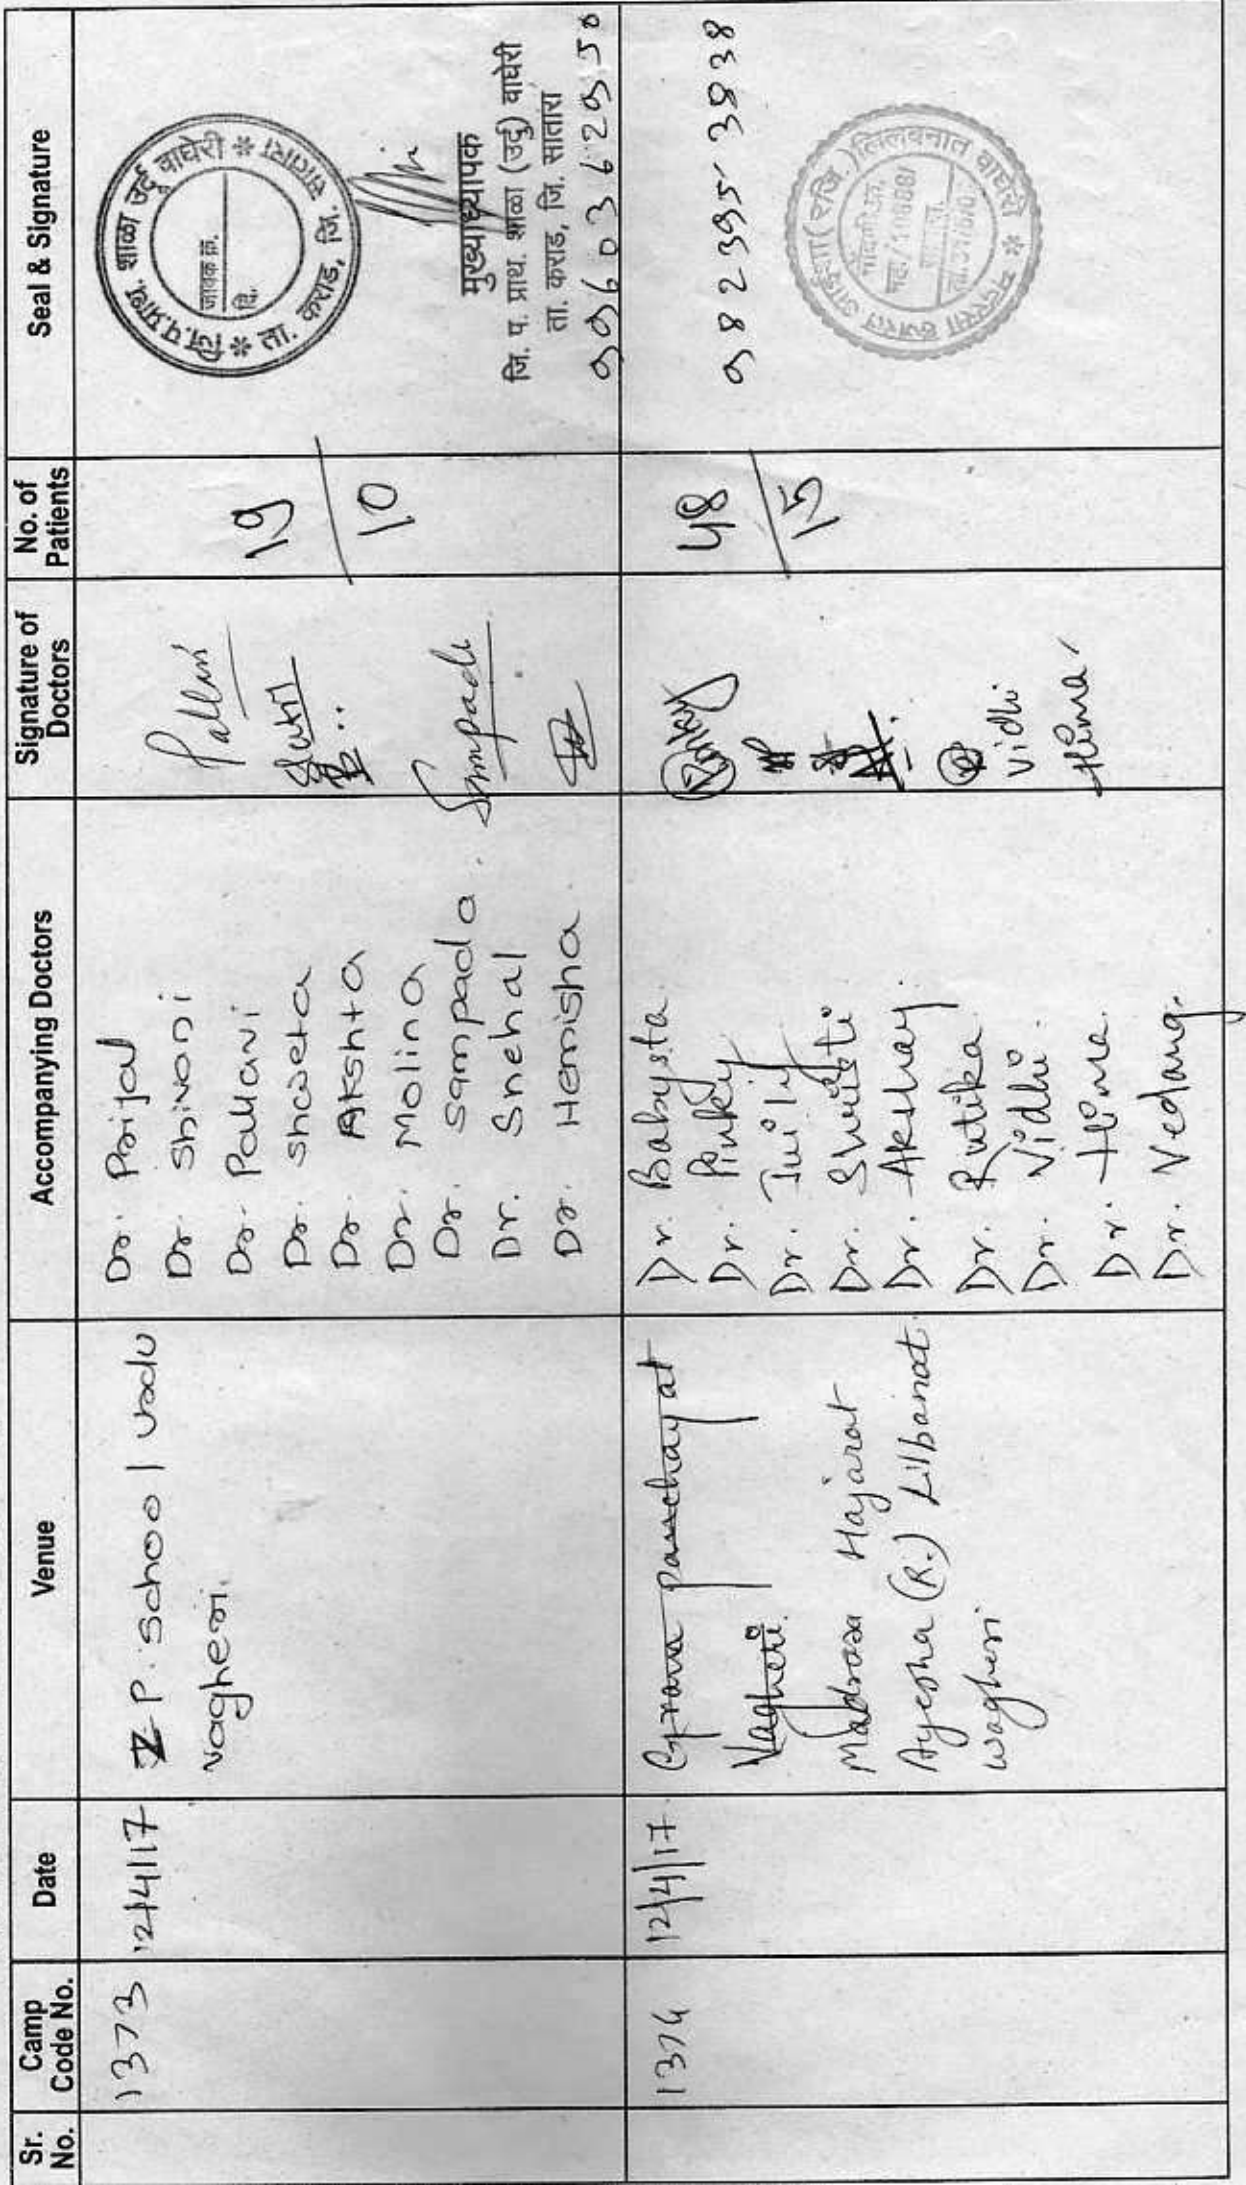 Sr. No.
Camp Code No.
Date
Venue
Accompanying Doctors
Signature of Doctors
No. of Patients
Seal & Signature
1373
12/4/17
Z.P. School | Urdu
vagheri.
Dr. Prijal
Dr. Shivani
Dr. Pallavi
Dr. Shweta
Dr. Akshta
Dr. Molina
Dr. Sampada.
Dr. Snehal
Dr. Hemisha
Pallavi
Sampada
19
10
जि.प.प्राथ. शाळा उर्दू वाघेरी * ता. कराड, जि. सातारा *
जावक क्र.
दि.
मुख्याध्यापक
जि. प. प्राथ. शाळा (उर्दु) वाघेरी
ता. कराड, जि. सातारा
9960362950
1374
12/4/17
Grama panchayat
Vagheri.
Madrasa Hajarat
Ayesha (R.) Lilbanat
Wagheri
Dr. Babysta
Dr. Pinky
Dr. Juily
Dr. Shristi
Dr. Akshay.
Dr. Rutika
Dr. Vidhi.
Dr. Hima.
Dr. Vedang.
Pinky
Vidhi
Hima.
48
15
982395-3938
मदरसा हजरत आईशा (रजि.) लिलबनात वाघेरी *